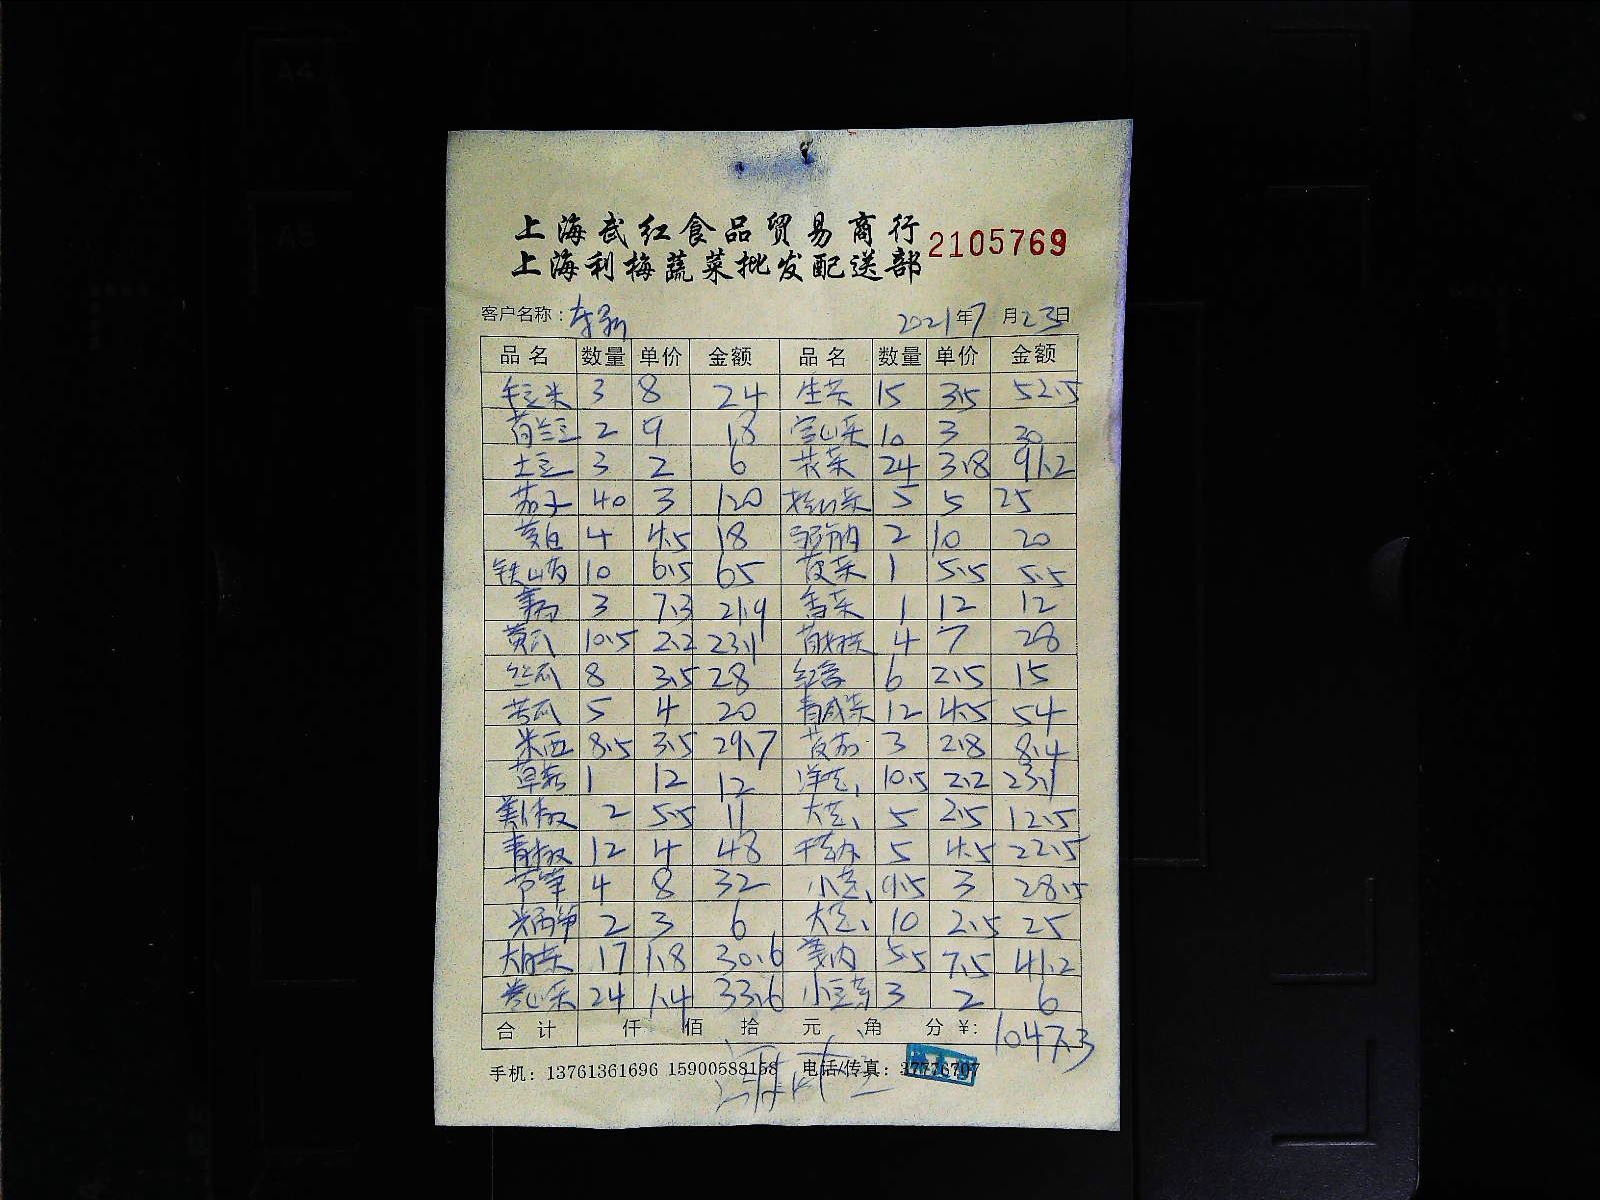 上海武红食品贸易商行
上海利梅蔬菜批发配送部
2105769
客户名称： 2021年7月23日
品名 数量 单价 金额 品名 数量 单价 金额
毛豆米 3 8 24 生菜 15 3.5 52.5
荷兰豆 2 9 18 10 3 30
土豆 3 2 6 花菜 24 3.8 91.2
茄子 40 3 120 5 5 25
茭白 4 4.5 18 2 10 20
铁山药 10 6.5 65 1 5.5 5.5
3 7.3 21.9 香菜 1 12 12
黄瓜 10.5 2.2 23.1 4 7 28
丝瓜 8 3.5 28 6 2.5 15
苦瓜 5 4 20 12 4.5 54
8.5 3.5 29.7 3 2.8 8.4
草菇 1 12 12 10.5 2.2 23.1
美人椒 2 5.5 11 5 2.5 12.5
青椒 12 4 48 5 4.5 22.5
4 8 32 9.5 3 28.5
2 3 6 10 2.5 25
17 1.8 30.6 5.5 7.5 41.2
24 1.4 33.6 3 2 6
合计 仟 佰 拾 元 角 分 ¥: 1047.3
手机：13761361696 15900588158 电话/传真：37776797